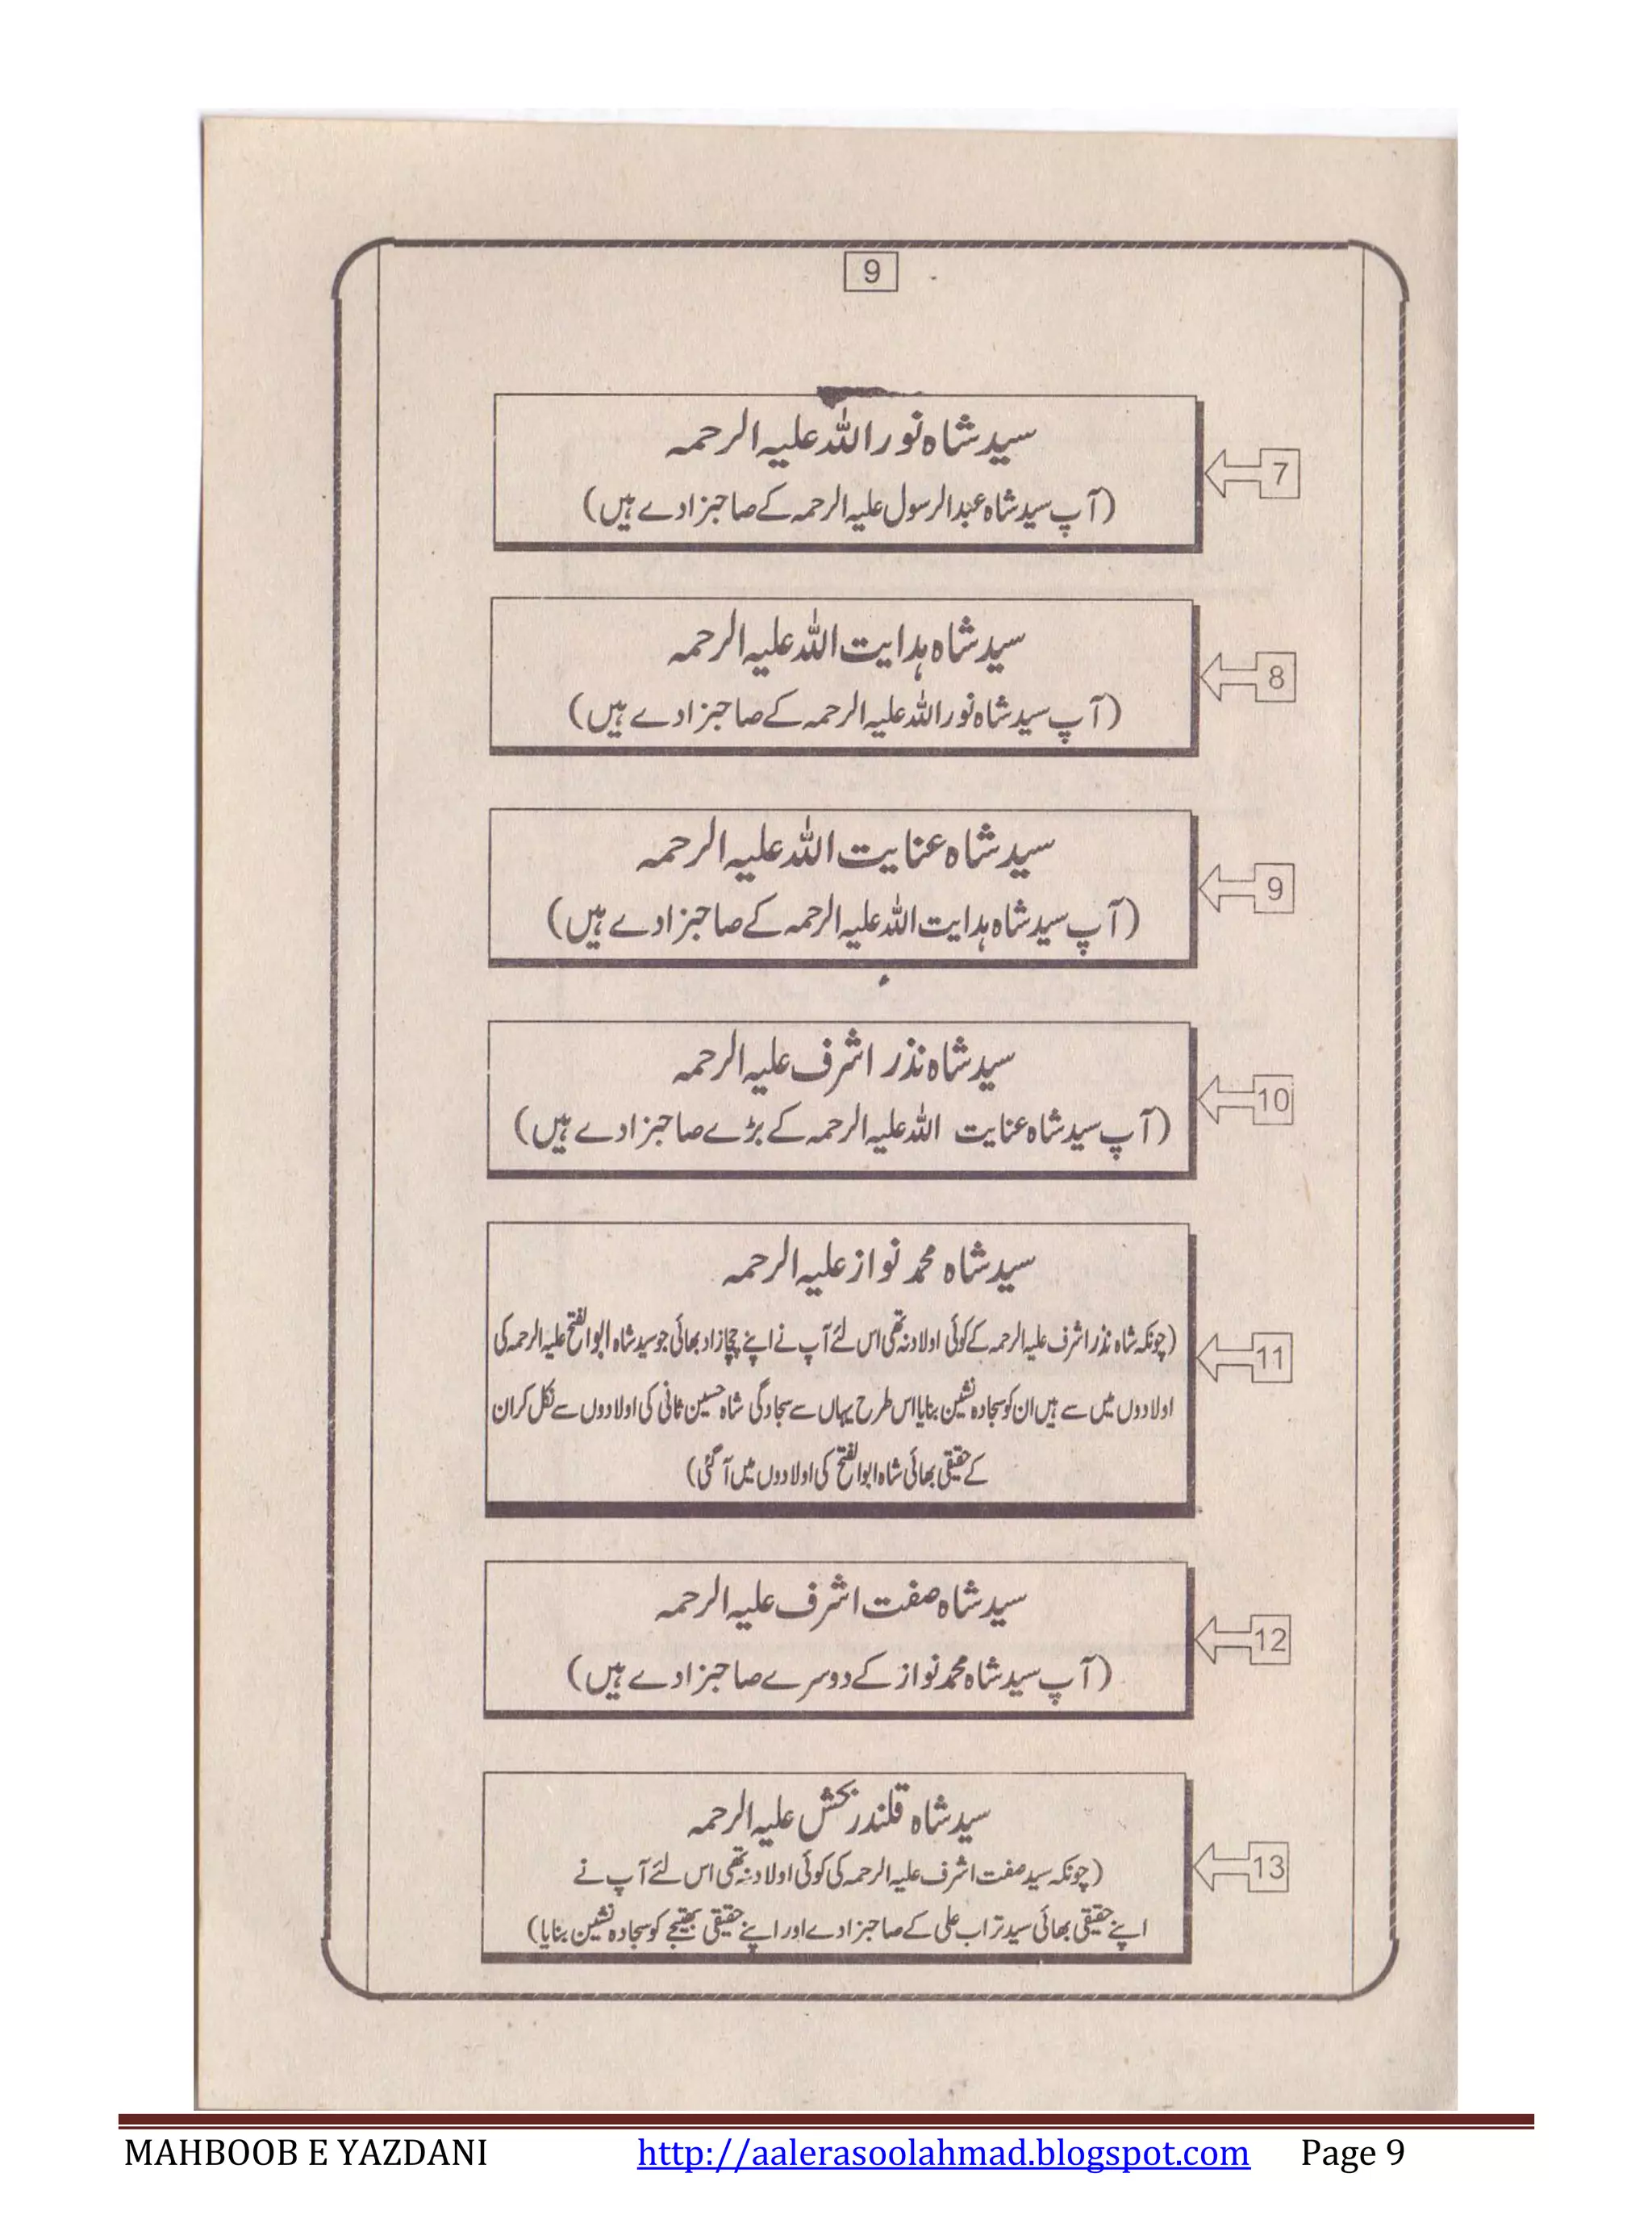 9
سید شاہ نور اللہ علیہ الرحمہ
(آپ سید شاہ عبدالرسول علیہ الرحمہ کے صاحبزادے ہیں)
7
سید شاہ ہدایت اللہ علیہ الرحمہ
(آپ سید شاہ نور اللہ علیہ الرحمہ کے صاحبزادے ہیں)
8
سید شاہ عنایت اللہ علیہ الرحمہ
(آپ سید شاہ ہدایت اللہ علیہ الرحمہ کے صاحبزادے ہیں)
9
سید شاہ نذر اشرف علیہ الرحمہ
(آپ سید شاہ عنایت اللہ علیہ الرحمہ کے بڑے صاحبزادے ہیں)
10
سید شاہ محمد نواز علیہ الرحمہ
(چونکہ شاہ نذر اشرف علیہ الرحمہ کے کوئی اولاد نہ تھی اس لئے آپ نے اپنے چچازاد بھائی جو سید شاہ ابوالفتح علیہ الرحمہ کی
اولادوں میں سے ہیں ان کو سجادہ نشین بنایا اس طرح یہاں سے سجادگی شاہ حسین ثانی کی اولادوں سے نکل کر ان
کے حقیقی بھائی شاہ ابوالفتح کی اولادوں میں آگئی)
11
سید شاہ صفت اشرف علیہ الرحمہ
(آپ سید شاہ محمد نواز کے دوسرے صاحبزادے ہیں)
12
سید شاہ قلندر بخش علیہ الرحمہ
(چونکہ سید صفت اشرف علیہ الرحمہ کی کوئی اولاد نہ تھی اس لئے آپ نے
اپنے حقیقی بھائی سید تراب علی کے صاحبزادے اور اپنے حقیقی بھتیجے کو سجادہ نشین بنایا)
13
MAHBOOB E YAZDANI http://aalerasoolahmad.blogspot.com Page 9